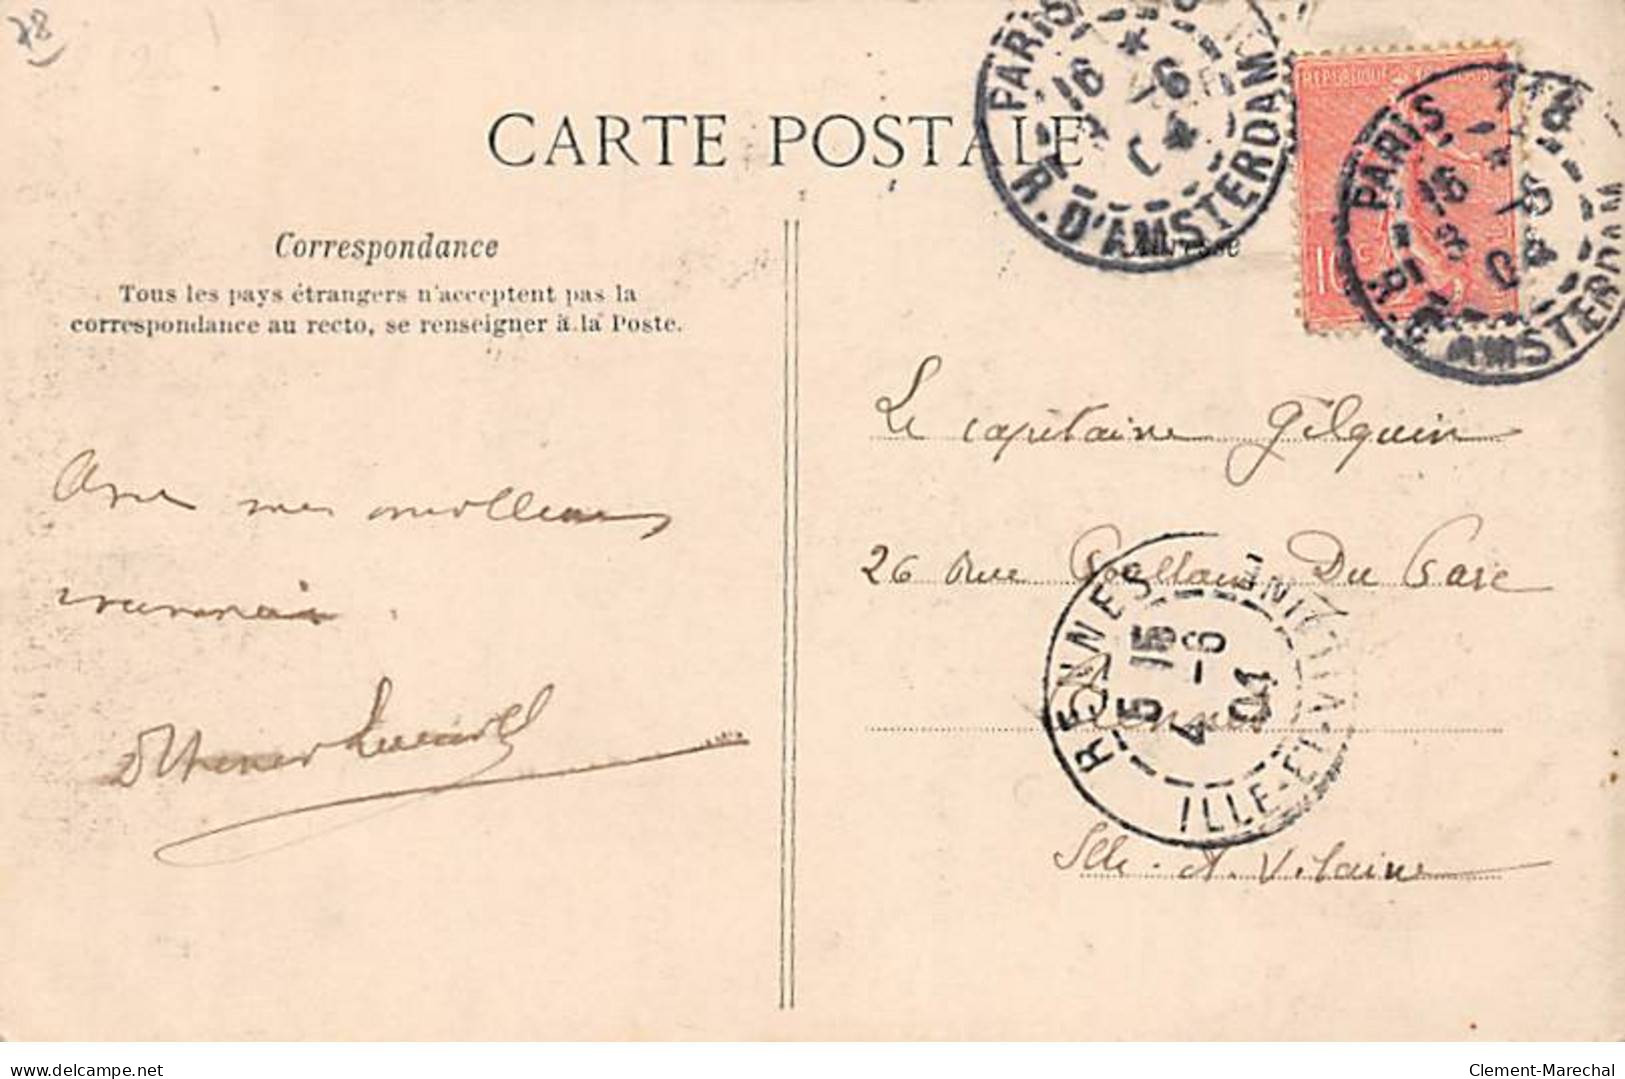 78
CARTE POSTALE
PARIS
R. D'AMSTERDAM
16
04
REPUBLIQUE FRANÇAISE
10
PARIS
R. D'AMSTERDAM
16
04
Correspondance
Adresse
Tous les pays étrangers n'acceptent pas la
correspondance au recto, se renseigner à la Poste.
Le capitaine Gilquin
Avec mes meilleurs
26 Rue Du Gare
RENNES
ILLE-ET-VILAINE
5 15
4 -6
04
Rennes
Ille. et. Vilaine
delcampe.net
Clement-Marechal